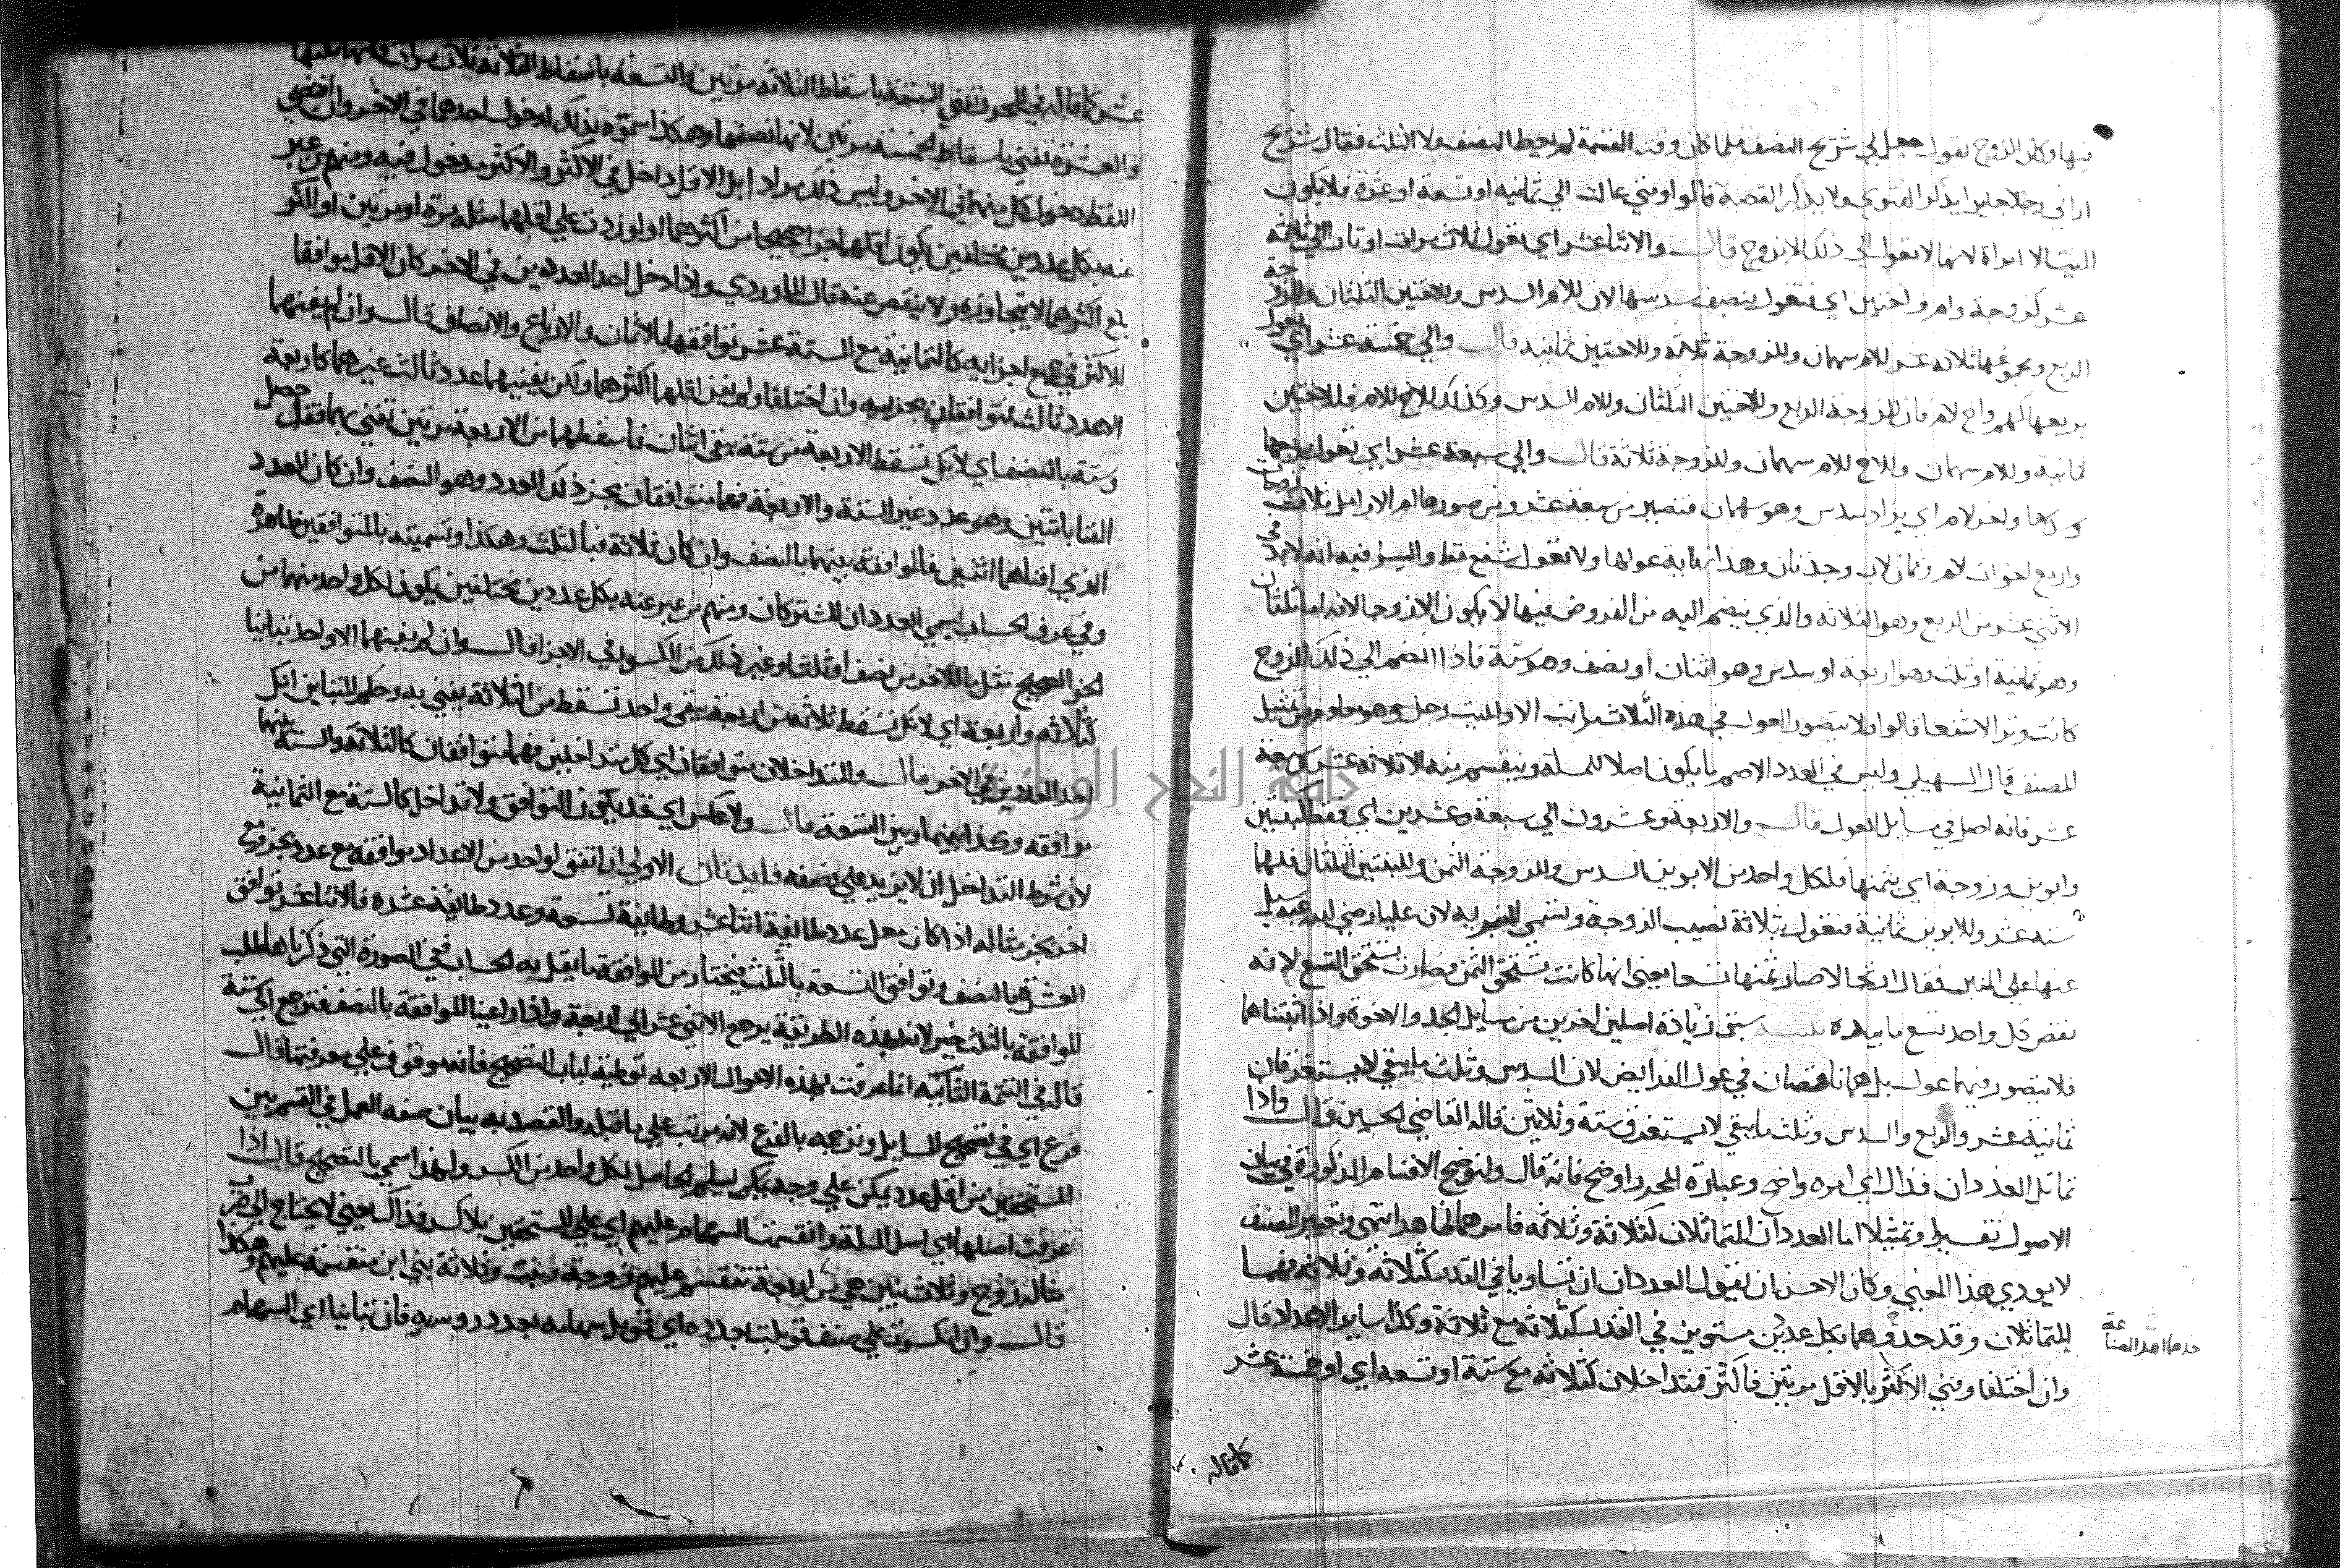 فيها وكان الزوج يقول جعل لي شريح النصف فلما كان وقت القسمة لم يعط النصف ولا الثلث فقال شريح
اراني رجلا جايرا يذكر الفتوي ولا يذكر القصة قالوا ومتي عالت الي ثمانية او تسعة او عشرة فلا يكون
الميت الا امراة لانها لا تعول الي ذلك الا بزوج قال والاثنا عشر اي تعول ثلاث مرات اوتارا الي ثلاثة
عشر كزوجة وام واختين اي فتعول بنصف سدسها لان للام السدس وللاختين الثلثان وللزوجة
الربع ومجموعها ثلاثة عشر للام سهمان وللزوجة ثلاثة وللاختين ثمانية قال والي خمسة عشر اي تعول
بربعها كهم واخ لام فان للزوجة الربع وللاختين الثلثان وللام السدس وكذلك للاخ للام فللاختين
ثمانية وللام سهمان وللاخ للام سهمان وللزوجة ثلاثة قال والي سبعة عشر اي تعول بربعها
واخر لام اي يزاد سدس وهو سهمان فتصير من سبعة عشر ومن صورها ام الارامل ثلاث زوجات
واربع اخوات لام وثمان لاب وجدتان وهذا نهاية عولها ولا تعول بشفع قط والسر فيه انه لا بد في
الاثني عشر من الربع وهو الثلاثة والذي ينضم اليه من الفروض فيها لا يكون الا زوجا لانه اما ثلثان
وهو ثمانية او ثلث وهو اربعة او سدس وهو اثنان او نصف وهو ستة فاذا انضم الي ذلك الزوج
كانت وترا لا شفعا قالوا ولا يتصور العول في هذه الثلاث مراتب الا والميت رجل وهو معلوم من تمثيل
المصنف قال السهيلي وليس في العدد الاصم ما يكون اصلا للمسلة وينقسم منه الا ثلاثة عشر وسبعة
عشر فانه اصل في مسايل العول قال والاربعة وعشرون الي سبعة وعشرين اي فقط كبنتين
وابوين وزوجة اي بثمنها فلكل واحد من الابوين السدس وللزوجة الثمن وللبنتين الثلثان فلهما
ستة عشر وللابوين ثمانية فتعول بثلاثة نصيب الزوجة وتسمي المنبرية لان عليا رضي الله عنه سيل
عنها علي المنبر فقال ارتجالا صار ثمنها تسعا يعني انها كانت تستحق الثمن فصارت تستحق التسع لانه
نقص كل واحد تسع ما بيده تنبيه سبق زيادة اصلين اخرين من مسايل الجد والاخوة واذا اثبتناهما
فلا يتصور فيهما عول بل هما ناقصان في عول الفرايض لان السدس وثلث ما يبقي لا يستغرقان
ثمانية عشر والربع والسدس وثلث ما يبقي لا يستغرق ستة وثلاثين قاله القاضي الحسين قال واذا
تماثل العددان فذاك اي امره واضح وعبارة المحرر اوضح فانه قال ولنوضح الاقسام المذكورة في بيان
الاصول تفسيرا وتمثيلا اما العددان المتماثلان كثلاثة وثلاثة فامرهما ظاهر انتهي وتعبير المصنف
لا يودي هذا المعني وكان الاحسن ان يقول العددان ان تساويا في القدر كثلاثة وثلاثة فهما
المتماثلان وقد حدوهما بكل عددين مستويين في القدر كثلاثة مع ثلاثة وكذا ساير الاعداد قال
وان اختلفا وفني الاكثر بالاقل مرتين فاكثر فمتداخلان كثلاثة مع ستة او تسعة اي او خمسة عشر
كما قاله
عشر كما قاله في المحرر تفني الستة باسقاط الثلاثة مرتين والتسعة باسقاط الثلاثة ثلاث مرات
والعشرة تفني باسقاط الخمسة مرتين لانها نصفها وهكذا سموه بذلك لدخول احدهما في الاخر وان اقتضي
اللفظ دخول كل منهما في الاخر وليس ذلك مرادا بل الاقل داخل في الاكثر والاكثر مدخول فيه ومنهم من عبر
عنه بكل عددين مختلفين يكون اقلهما جزا صحيحا من اكثرهما او لو زدت علي اقلهما مثله مرة او مرتين او اكثر
بلغ اكثرهما لا يتجاوزه ولا ينقص عنه قال الماوردي واذا دخل احد العددين في الاخر كان الاقل موافقا
للاكثر في جميع اجزايه كالثمانية مع الستة عشر توافقها بالاثمان والارباع والانصاف قال وان لم يفنهما
الا عدد ثالث فمتوافقان بجزيه وان اختلفا ولم يفن اقلهما اكثرهما ولكن يفنيهما عدد ثالث غيرهما كاربعة
وستة بالنصف اي لانك تسقط الاربعة من ستة يبقي اثنان فاسقطهما من الاربعة مرتين تفني بهما فقد حصل
الفنا باثنين وهو عدد غير الستة والاربعة فهما متوافقان بجزء ذلك العدد وهو النصف وان كان العدد
الذي افناهما اثنين فالموافقة بينهما بالنصف وان كان ثلاثة فبالثلث وهكذا وتسميته بالمتوافقين ظاهرة
وفي عرف الحساب يسمي العددان المشتركان ومنهم من عبر عنه بكل عددين مختلفين يكون لكل واحد منهما من
الجزء الصحيح مثل ما للاخر من نصف او ثلث او غير ذلك من الكسور في الاجزا قال وان لم يفنهما الا واحد تباينا
كثلاثة واربعة اي لانك تسقط ثلاثة من اربعة يبقي واحد تسقط من الثلاثة يفني به وحكم المتباين انك
احد العددين في الاخر قال والمتداخلان متوافقان اي كل متداخلين فهما متوافقان كالثلاثة والستة بينهما
موافقة وكذا بينهما وبين التسعة قال ولا عكس اي قد يكون التوافق ولا تداخل كالستة مع الثمانية
لان شرط التداخل ان لا يزيد علي نصفه فايدتان الاولي ان اتفق لواحد من الاعداد موافقة مع عدد بجزء ومع
اخر بجزء مثاله اذا كان معك عدد طايفة اثنا عشر وطايفة تسعة وعدد طايفة عشرة فالاثنا عشر توافق
العشرة بالنصف وتوافق التسعة بالثلث فيختار من الموافقة ما يقل به الحساب ففي الصورة التي ذكرناها طلب
الموافقة بالثلث خير لانه بهذه الطريقة يرجع الاثني عشر الي اربعة واذا راعينا الموافقة بالنصف فترجع الي ستة
قاله في التتمة الثانية انما عرفت بهذه الاحوال الاربعة توطية لباب التصحيح فانه موقوف علي معرفتها قال
فرع اي في تصحيح المسايل وترجمه بالفرع لانه مرتب علي ما قبله والقصد به بيان صفة العمل في القسم بين
المستحقين من اقل عدد يمكن علي وجه يمكن يسلم الحاصل لكل واحد من الكسر ولهذا سمي بالتصحيح قال اذا
عرفت اصلها اي اصل المسلة وانقسمت السهام عليهم اي علي المستحقين بلا كسر فذاك يعني لا يحتاج الي ضرب
مثاله زوج وثلاث بنين هي من اربعة تنقسم عليهم زوجة وبنت وثلاثة بني ابن منقسمة عليهم وهكذا
قال وان انكسرت علي صنف قوبلت بعدده اي قوبل سهامه بعدد روسه فان تباينا اي السهام